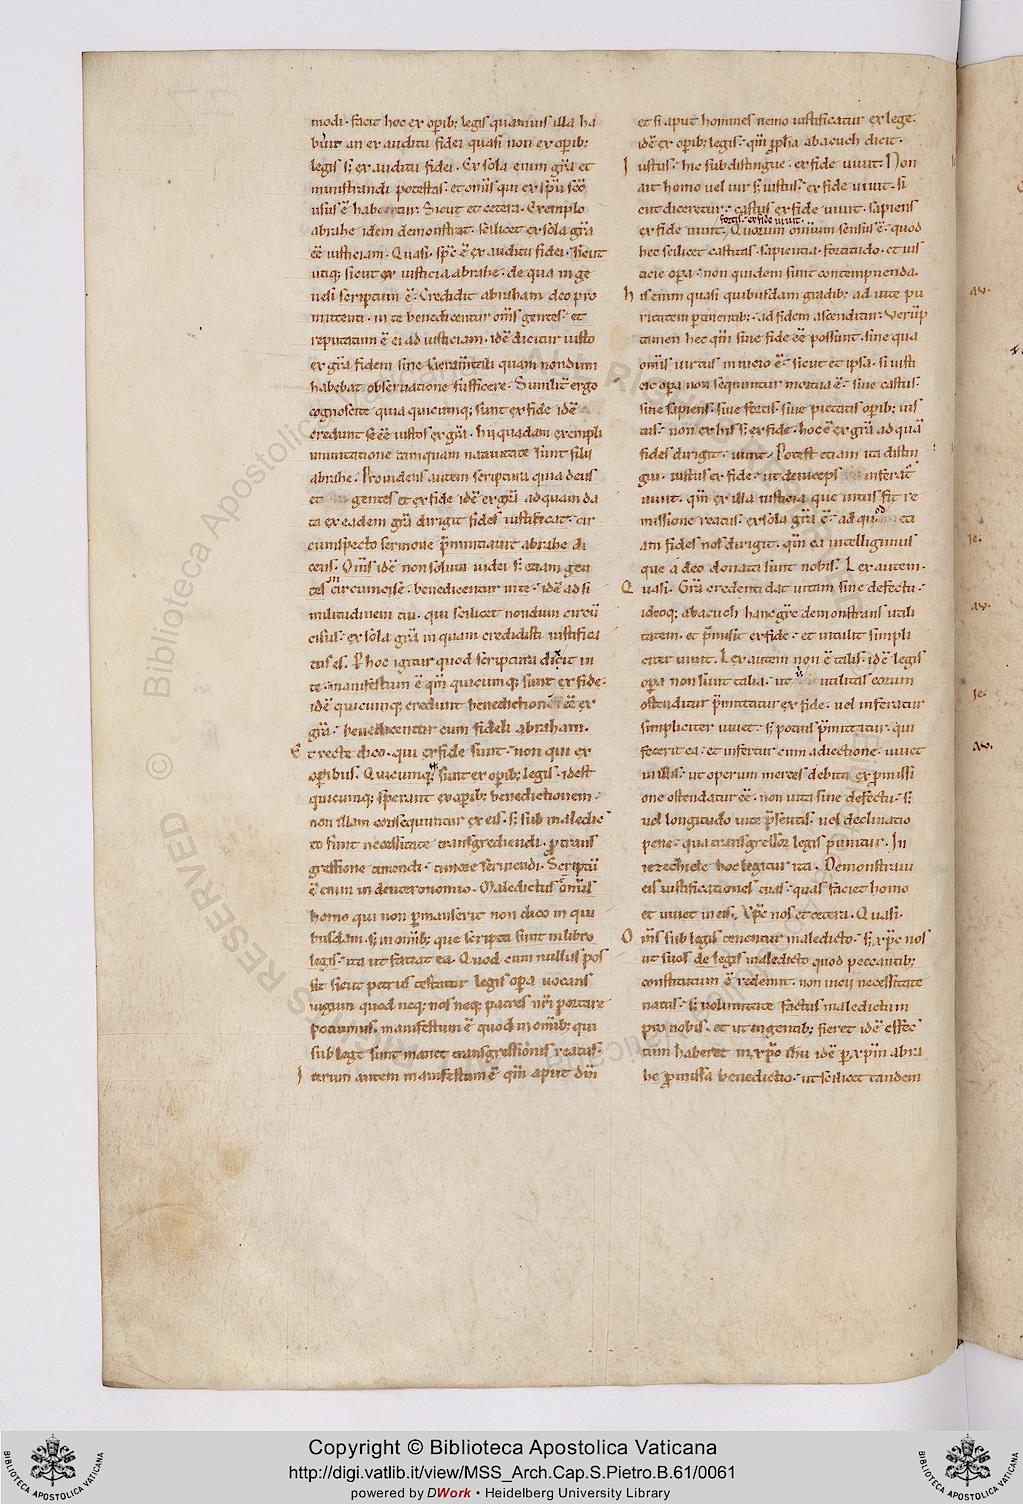 modi · facit hoc ex oꝑib; legis quamuis illa ha
buit an ex auditu fidei quasi non ex oꝑib;
legis sꝫ ex auditu fidei · Ex sola enim gr̄a et
ministrandi potestas · et om̄is qui ex sp̄u sc̄o
usus ē habeatur. Sicut et cetera. Exemplo
abrahe idem demonstrat · scilicet ex sola gr̄a
eē iusticiam. Quasi · sp̄c ē ex auditu fidei · sicut
utiq; sicut ex iusticia abrahe · de qua in ge
nesi scriptum ē · Credidit abraham deo pro
mittenti · in te benedicentur om̄s gentes · et
reputatum ē ei ad iusticiam · idē dicitur iusto
ex gr̄a fidem sine sacram̄tali quam nondum
habebat obseruatione sufficere · Similit̄ ergo
cognoscite quia quicumq; sunt ex fide idē
credunt se eē iustos ex gr̄a · hii quadam exempli
imitatione tamquam natiuitate sunt filii
abrahe · Prouidens autem scriptura quia deus
et gentes et ex fide idē ex gr̄a ad quam da
ta ex eadem gr̄a dirigit fides iustificat · cir
cumspecto sermone p̄nuntiauit abrahe di
cens · Om̄s idē non solum iudei sꝫ etiam gen
tes incircumcise · benedicentur in te · idē ad si
militudinem tui · qui scilicet nondum circū
cisus · ex sola gr̄a in quam credidisti iustifica
tus es. P hoc igitur quod scriptura dicit in
te · manifestum ē qm̄ quicumq; sunt ex fide ·
idē quicumq; credunt benedictionē eē ex
gr̄a · benedicentur cum fideli abraham.
Et recte dico · qui ex fide sunt · non qui ex
oꝑibus. Quicumq; sunt ex oꝑib; legis · idest
quicumq; sperant ex oꝑib; benedictionem ·
non illam consequuntur ex eis · sꝫ sub maledic
to sunt necessitate transgrediendi · ꝓ trans
gressione timendi · timore seruiendi · Scriptū
ē enim in deuteronomio · Maledictus om̄is
homo qui non ꝑmanserit non dico in qui
busdam · sꝫ in om̄ib; que scripta sunt in libro
legis · ita ut faciat ea. Quod cum nullus pos
sit sicut petrus testatur legis oꝑa uocans
iugum quod neq; nos neq; patres nr̄i portare
potuimus · manifestum ē quod in om̄ib; qui
sub lege sunt manet transgressionis reatus ·
Iterum autem manifestum ē qm̄ aput dm̄
et si aput homines nemo iustificatur ex lege ·
idē ex oꝑib; legis · qm̄ ꝓph̄a abacuch dicit ·
Iustus · hic subdistingue · ex fide uiuit. Non
ait homo uel uir sꝫ iustus · ex fide uiuit · si
cut diceretur · castus ex fide uiuit · sapiens
fortis · ex fide uiuit ·
ex fide uiuit · Quorum omnium sensus ē · quod
hec scilicet castitas · sapientia · fortitudo · et ius
ticie oꝑa · non quidem sunt contempnenda ·
His enim quasi quibusdam gradib; ad uite pu
ritatem ꝑtinentib; · ad fidem ascenditur · Verūp
tamen hec qm̄ sine fide eē possunt · sine qua
om̄is uirtus in uicio ē · sicut et ipsa · si iusti
cie oꝑa non sequuntur mortua ē · siue castus ·
siue sapiens · siue fortis · siue pietatis oꝑib; ius
tus · non ex his sꝫ ex fide · hoc ē ex gr̄a ad quā
fides dirigit · uiuit · Potest etiam ita distin
gui · iustus ex fide · ut deinceps inferat̄
uiuit · qm̄ ex illa iusticia que intus fit re
missione reatus · ex sola gr̄a ē · ad quod eti
am fides nos dirigit · qm̄ ea intelligimus
que a deo donata sunt nobis. Lex autem ·
Quasi · Gr̄a credenti dat uitam sine defectu ·
ideoq; abacuch hanc gr̄e demonstrans utili
tatem · et p̄misit ex fide · et intulit simpli
citer uiuit. Lex autem non ē talis · idē legis
oꝑa non sunt talia · ut utilitas eorum
ostenditur p̄mittatur ex fide · uel inferatur
simpliciter uiuet · sꝫ potius p̄mittatur · qui
fecerit ea · et infertur cum adiectione · uiuet
in illis · ut operum merces debita ex ꝓmissi
one ostendatur eē · non uita sine defectu · sꝫ
uel longitudo uite p̄sentis · uel declinatio
pene · qua transgressor legis punitur · In
iezechiele hoc legitur ita · Demonstraui
eis iustificationes tuas · quas faciet homo
et uiuet in eis · Xp̄c nos et cetera · Quasi ·
Om̄s sub legis tenentur maledicto · sꝫ xp̄c nos
ut suos de legis maledicto quod peccantib;
constitutum ē redemit · non incii necessitate
natus · sꝫ uoluntate factus maledictum
pro nobis · et ut in gentib; fieret idē effec
tum haberet in xp̄o ih̄u idē ꝑ xp̄m abra
he ꝓmissa benedictio · ut scilicet tandem
av.
se.
av.
se.
av.
© Biblioteca Apostolica Vaticana
ALL RIGHTS RESERVED
Copyright © Biblioteca Apostolica Vaticana
http://digi.vatlib.it/view/MSS_Arch.Cap.S.Pietro.B.61/0061
powered by DWork • Heidelberg University Library
BIBLIOTECA APOSTOLICA VATICANA
BIBLIOTECA APOSTOLICA VATICANA